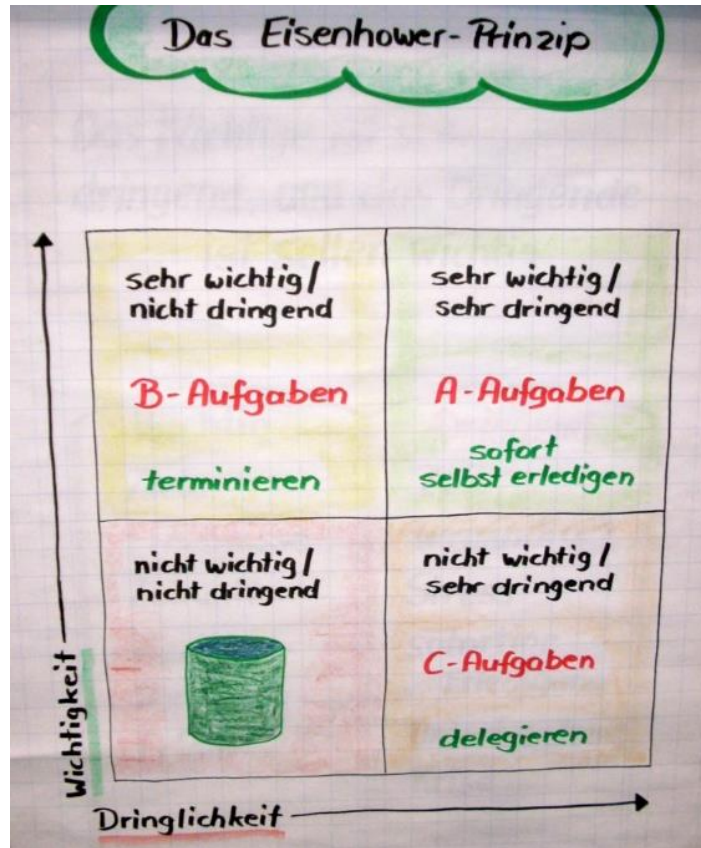 Das Eisenhower-Prinzip
sehr wichtig/
nicht dringend
B-Aufgaben
terminieren
sehr wichtig/
sehr dringend
A-Aufgaben
sofort
selbst erledigen
nicht wichtig/
nicht dringend
nicht wichtig/
sehr dringend
C-Aufgaben
delegieren
Wichtigkeit
Dringlichkeit